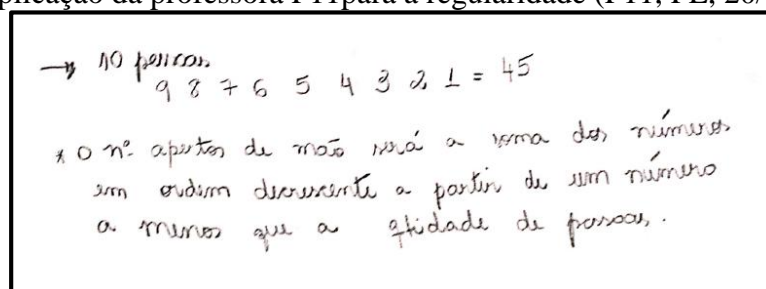 plicação da professora P11para a regularidade (P11, PE, 20/
→ 10 pessoas
9 8 7 6 5 4 3 2 1 = 45
* O nº apertos de mão será a soma dos números
em ordem decrescente a partir de um número
a menos que a qtidade de pessoas.